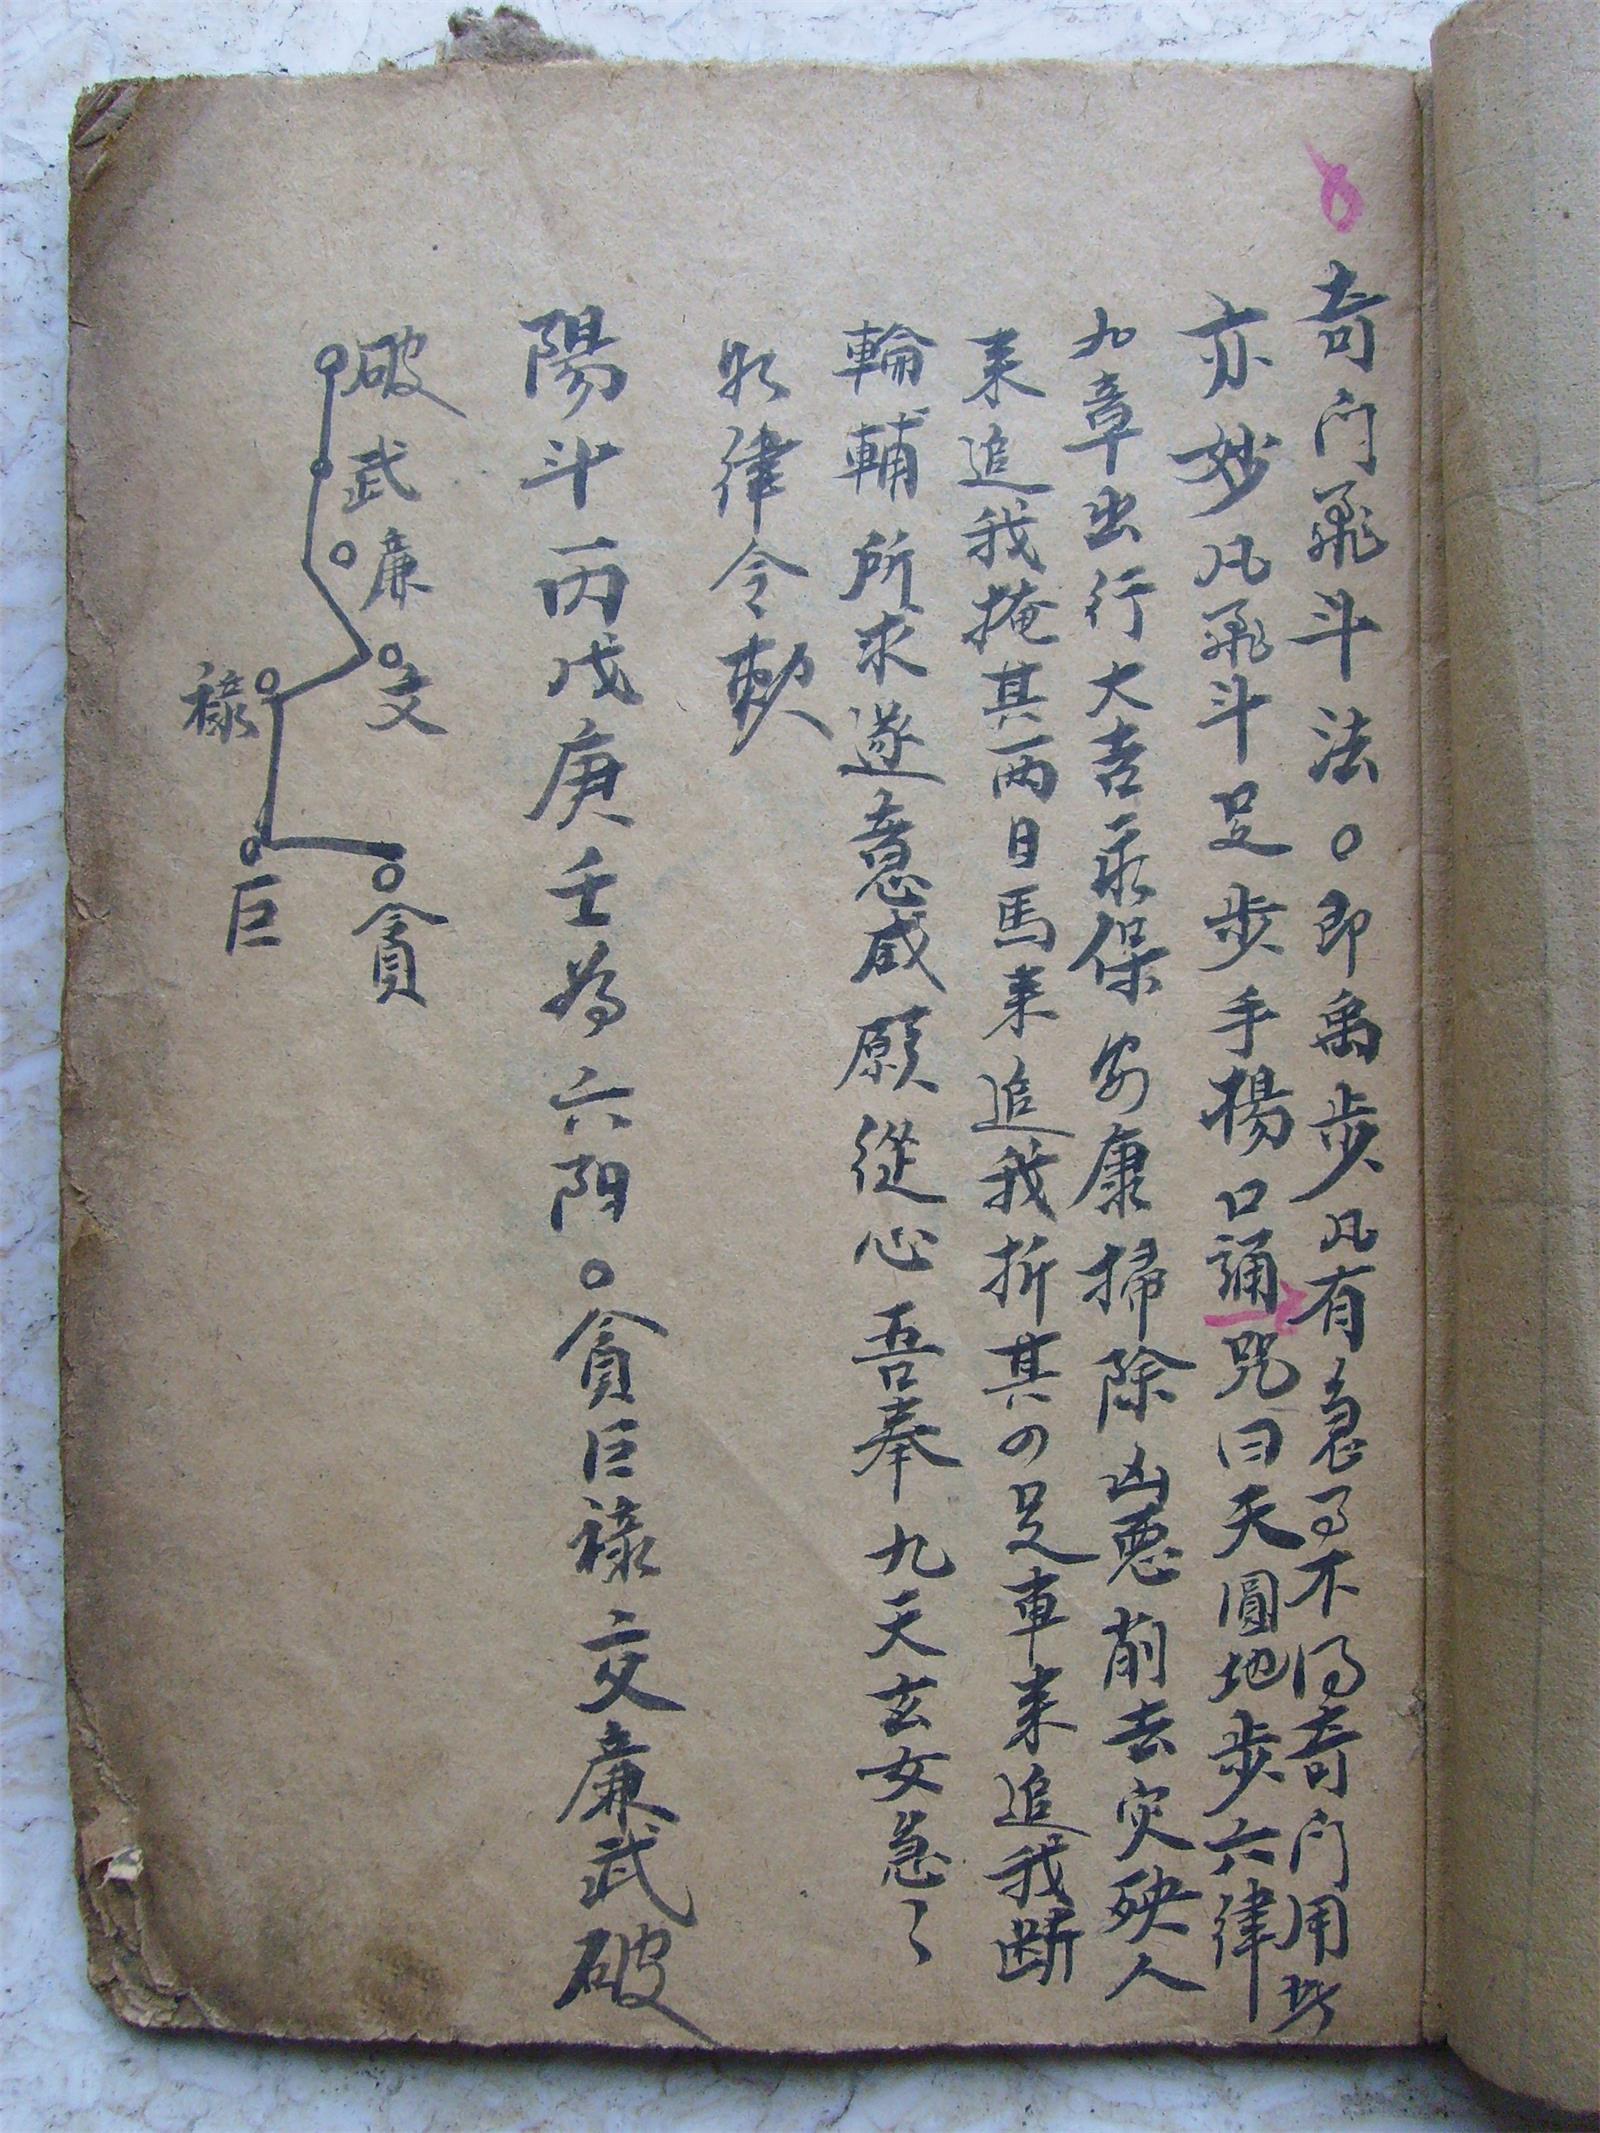 奇门飛斗法○即禹步凡有急了不得奇门用此
亦妙凡飛斗足步手揚口誦咒曰天圓地步六律
九章出行大吉永保安康掃除凶惡削去灾殃人
来追我掩其两日馬来追我折其四足車来追我断
輪輔所求遂意咸願從心吾奉九天玄女急々
如律令敕
陽斗丙戊庚壬為六阳○貪巨禄文廉武破
破
武
廉
文
禄
巨
貪
8